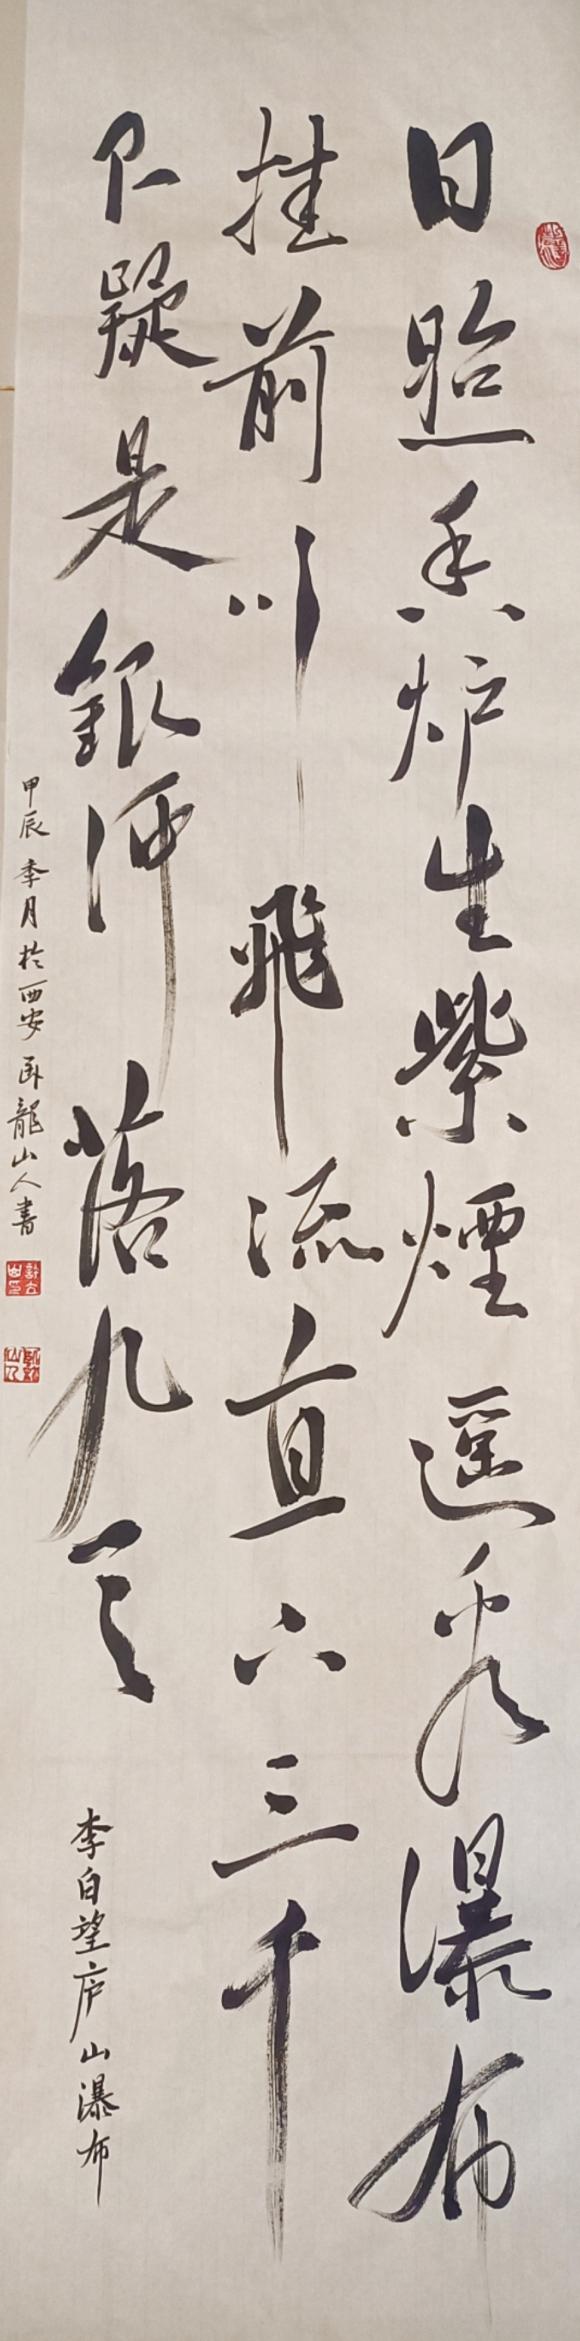 日照香炉生紫煙遥看瀑布
挂前川飛流直下三千
尺疑是銀河落九天
李白望庐山瀑布
甲辰季月於西安卧龍山人書